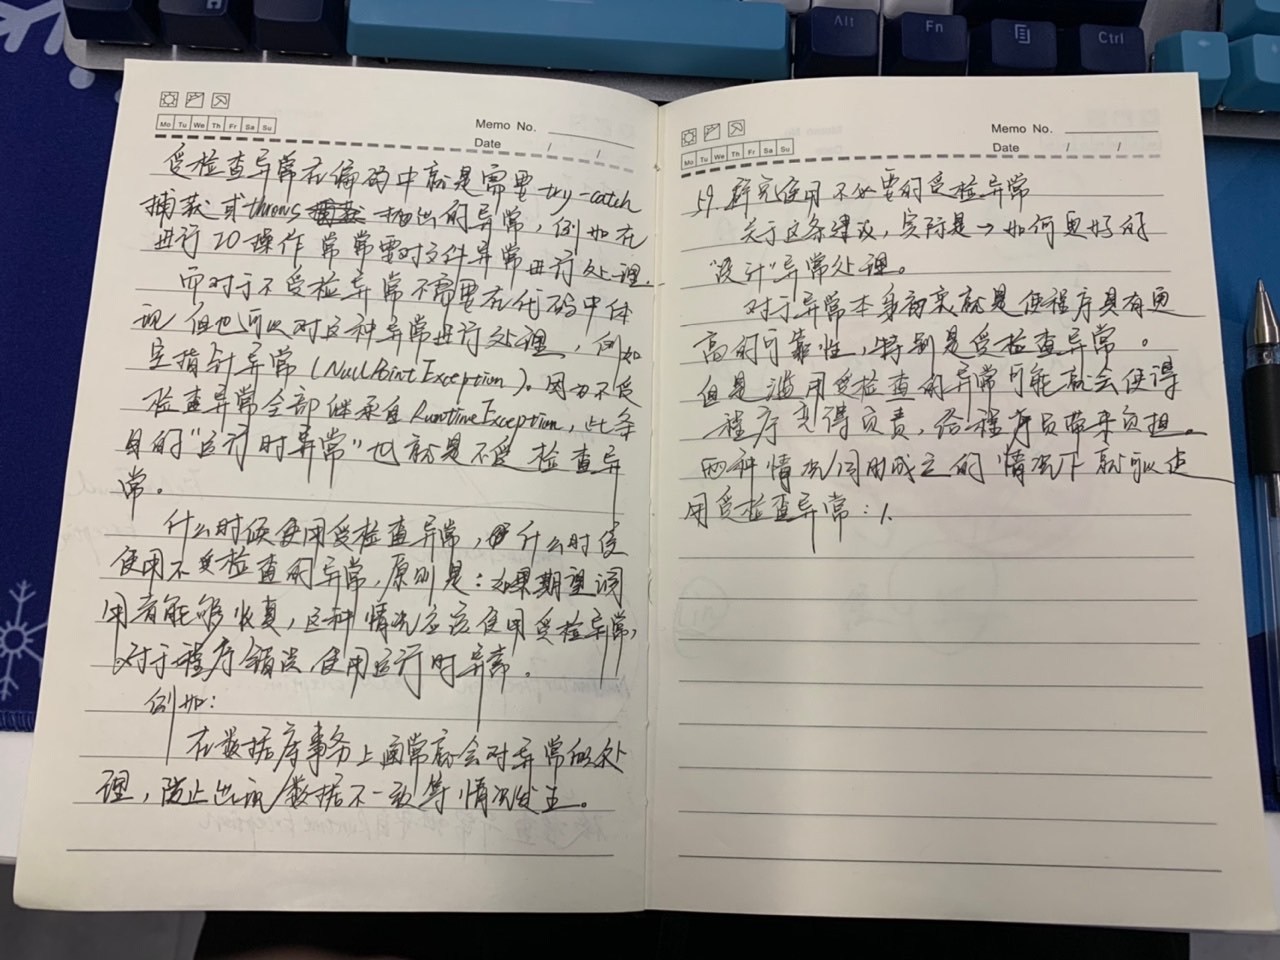 Alt
Fn
Ctrl
Mo Tu We Th Fr Sa Su
Memo No.
Date / /
受检查异常在编码中就是需要try-catch
捕获或throws 抛出的异常，例如在
进行IO操作常常需对文件异常进行处理.
而对于不受检异常不需要在代码中体
现 但也可以对这种异常进行处理，例如
空指针异常(NullPointException)。因为不受
检查异常全部继承自RuntimeException，此条
目的"运行时异常"也就是不受检查异
常。
什么时候使用受检查异常，什么时候
使用不受检查的异常，原则是：如果期望调
用者能够恢复，这种情况应该使用受检异常，
对于程序错误使用运行时异常.
例如：
在数据库事务上通常都会对异常做处
理，防止出现数据不一致等情况发生。
Mo Tu We Th Fr Sa Su
Memo No.
Date / /
59.避免使用不必要的受检异常
关于这条建议，实际是→如何更好的
"设计"异常处理。
对于异常本身初衷就是使程序具有更
高的可靠性，特别是受检查异常。
但是滥用受检查的异常可能就会使得
程序变得负责，给程序员带来负担。
两种情况同时成立的情况下就可以使
用受检查异常：1.